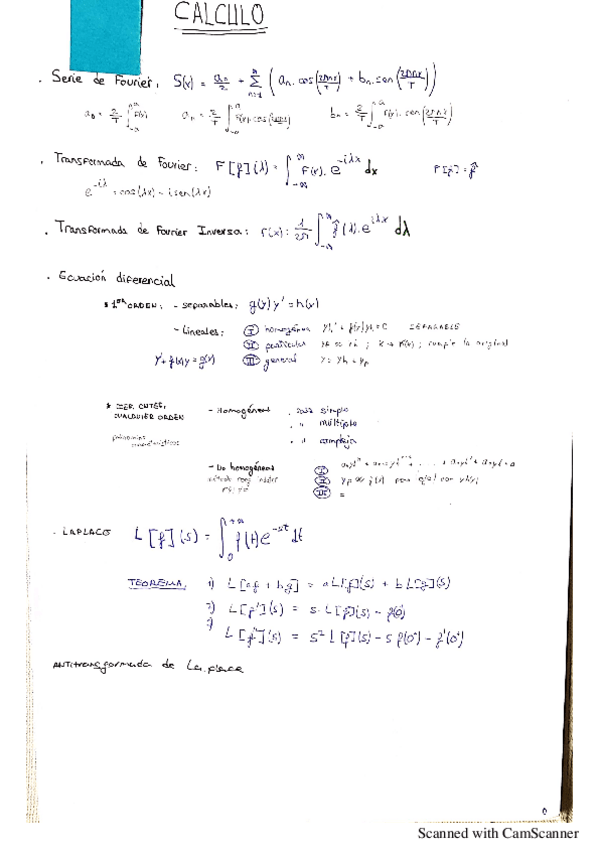 CALCULO
· Serie de Fourier: S(x) = a₀/2 + Σ n=1 (aₙ · cos(2πnx/T) + bₙ · sen(2πnx/T))
a₀ = 2/T ∫ f(x) aₙ = 2/T ∫ f(x) cos(2πnx/T) bₙ = 2/T ∫ f(x) · sen(2πnx/T)
· Transformada de Fourier: F[f](λ) = ∫ f(x) · e^{-iλx} dx F[f] = f̂
e^{-iλ} = cos(λx) - i sen(λx)
· Transformada de Fourier Inversa: f(x): 1/2π ∫ f̂(λ) · e^{iλx} dλ
· Ecuación diferencial
1er ORDEN: - separables: g(y) y' = h(x)
- Lineales: I homogénea SEPARABLE
II particular ; cumple la original
y' + f(x) y = g(x) III general y = yh + yp
CUALQUIER ORDEN - Homogéneas · raíz simple
· " múltiple
· " compleja
- No homogéneas I
II
III =
· LAPLACE L[f](s) = ∫₀^{+∞} f(t) e^{-st} dt
TEOREMA: 1) L[af + bg] = a L[f](s) + b L[g](s)
2) L[f'](s) = s · L[f](s) - f(0⁺)
3) L[f''](s) = s² L[f](s) - s f(0⁺) - f'(0⁺)
ANTItransformada de Laplace
0
Scanned with CamScanner